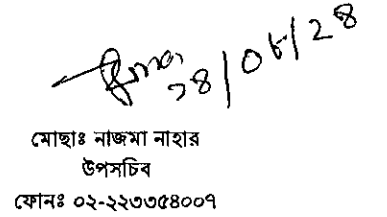 ২৪/০৬/২৪
মোছাঃ নাজমা নাহার
উপসচিব
ফোনঃ ০২-২২৩৩৫৪০০৭